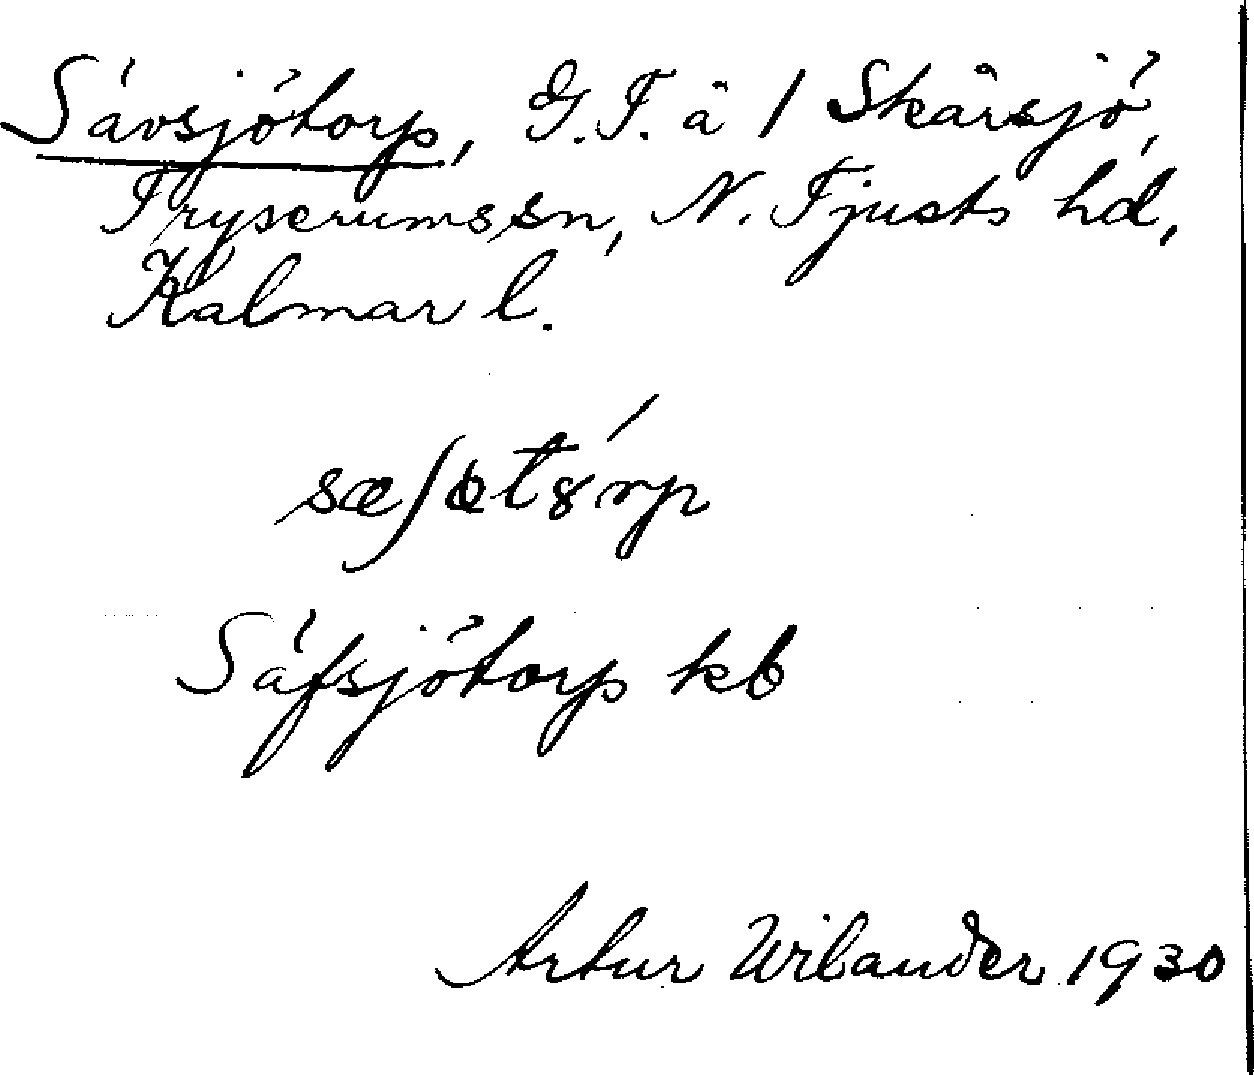 Sävsjötorp, G.T. å 1 Skårsjö,
Tryserums sn, N. Tjusts hd,
Kalmar l.
Säfsjötorp kb
Artur Wilander 1930